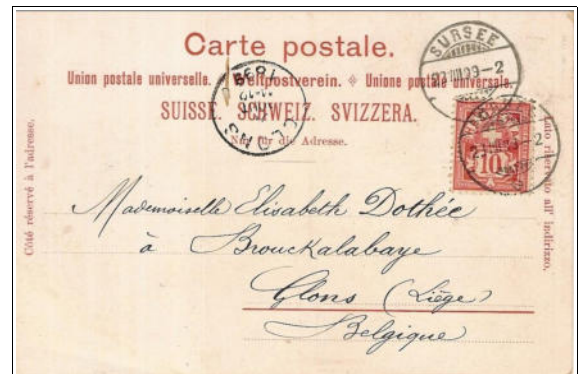 Carte postale.
Union postale universelle. Weltpostverein. Unione postale universale.
SUISSE. SCHWEIZ. SVIZZERA.
Nur für die Adresse.
Côté réservé à l'adresse.
Lato riservato all' indirizzo.
SURSEE
GLONS
10
Mademoiselle Elisabeth Dothée
à Brouckalabaye
Glons (Liège)
Belgique